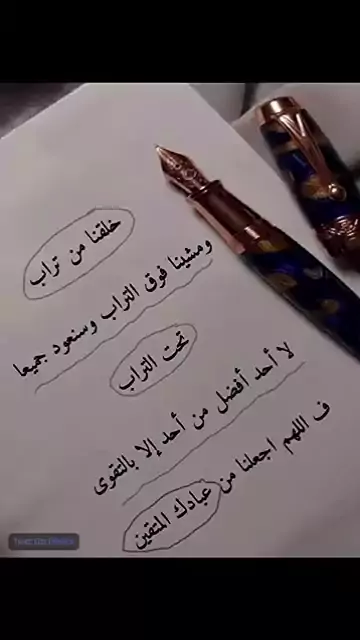 خلقنا من تراب
ومشينا فوق التراب وسنعود جميعا
تحت التراب
لا أحد أفضل من أحد إلا بالتقوى
ف اللهم اجعلنا من عبادك المتقين